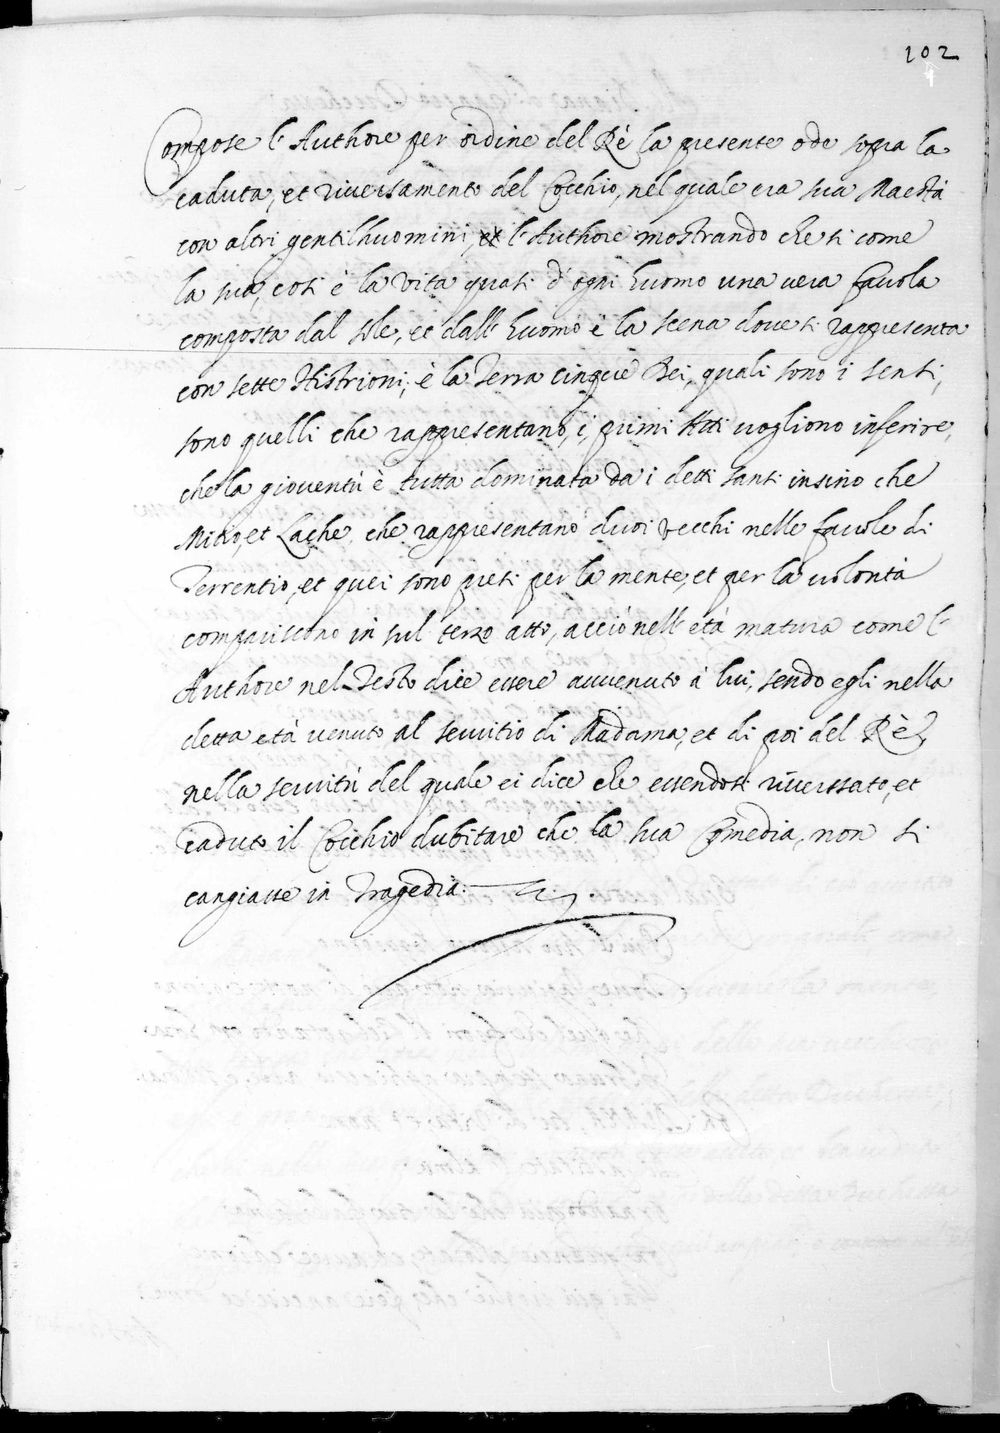 102
Compose l'Authore per ordine del Rè la presente ode sopra la
caduta, et riversamento del Cocchio, nel quale era sua Maestà
con altri gentilhuomini, l'Authore mostrando che si come
la sua, cosi è la vita quasi d'ogni huomo una vera favola
composta dal sole, et dall'huomo è la scena dove si rappresenta
con sette Histrioni, è la Terra cinque Rei, quali sono i sensi,
sono quelli che rappresentano, i primi Atti vogliono inferire,
che la gioventù è tutta dominata da i detti sensi insino che
Mitio, et Lache, che rappresentano duoi vecchi nelle favole di
Terrentio, et quei sono presi per la mente, et per la volontà
compariscono in sul terzo atto, acciò nell'età matura come l'
Authore nel Testo dice essere avvenuto à lui, sendo egli nella
detta età venuto al servitio di Madama, et di poi del Rè,
nella servitù del quale ei dice che essendosi riverssato, et
caduto il Cocchio dubitare che la sua Comedia, non si
cangiasse in Tragedia.